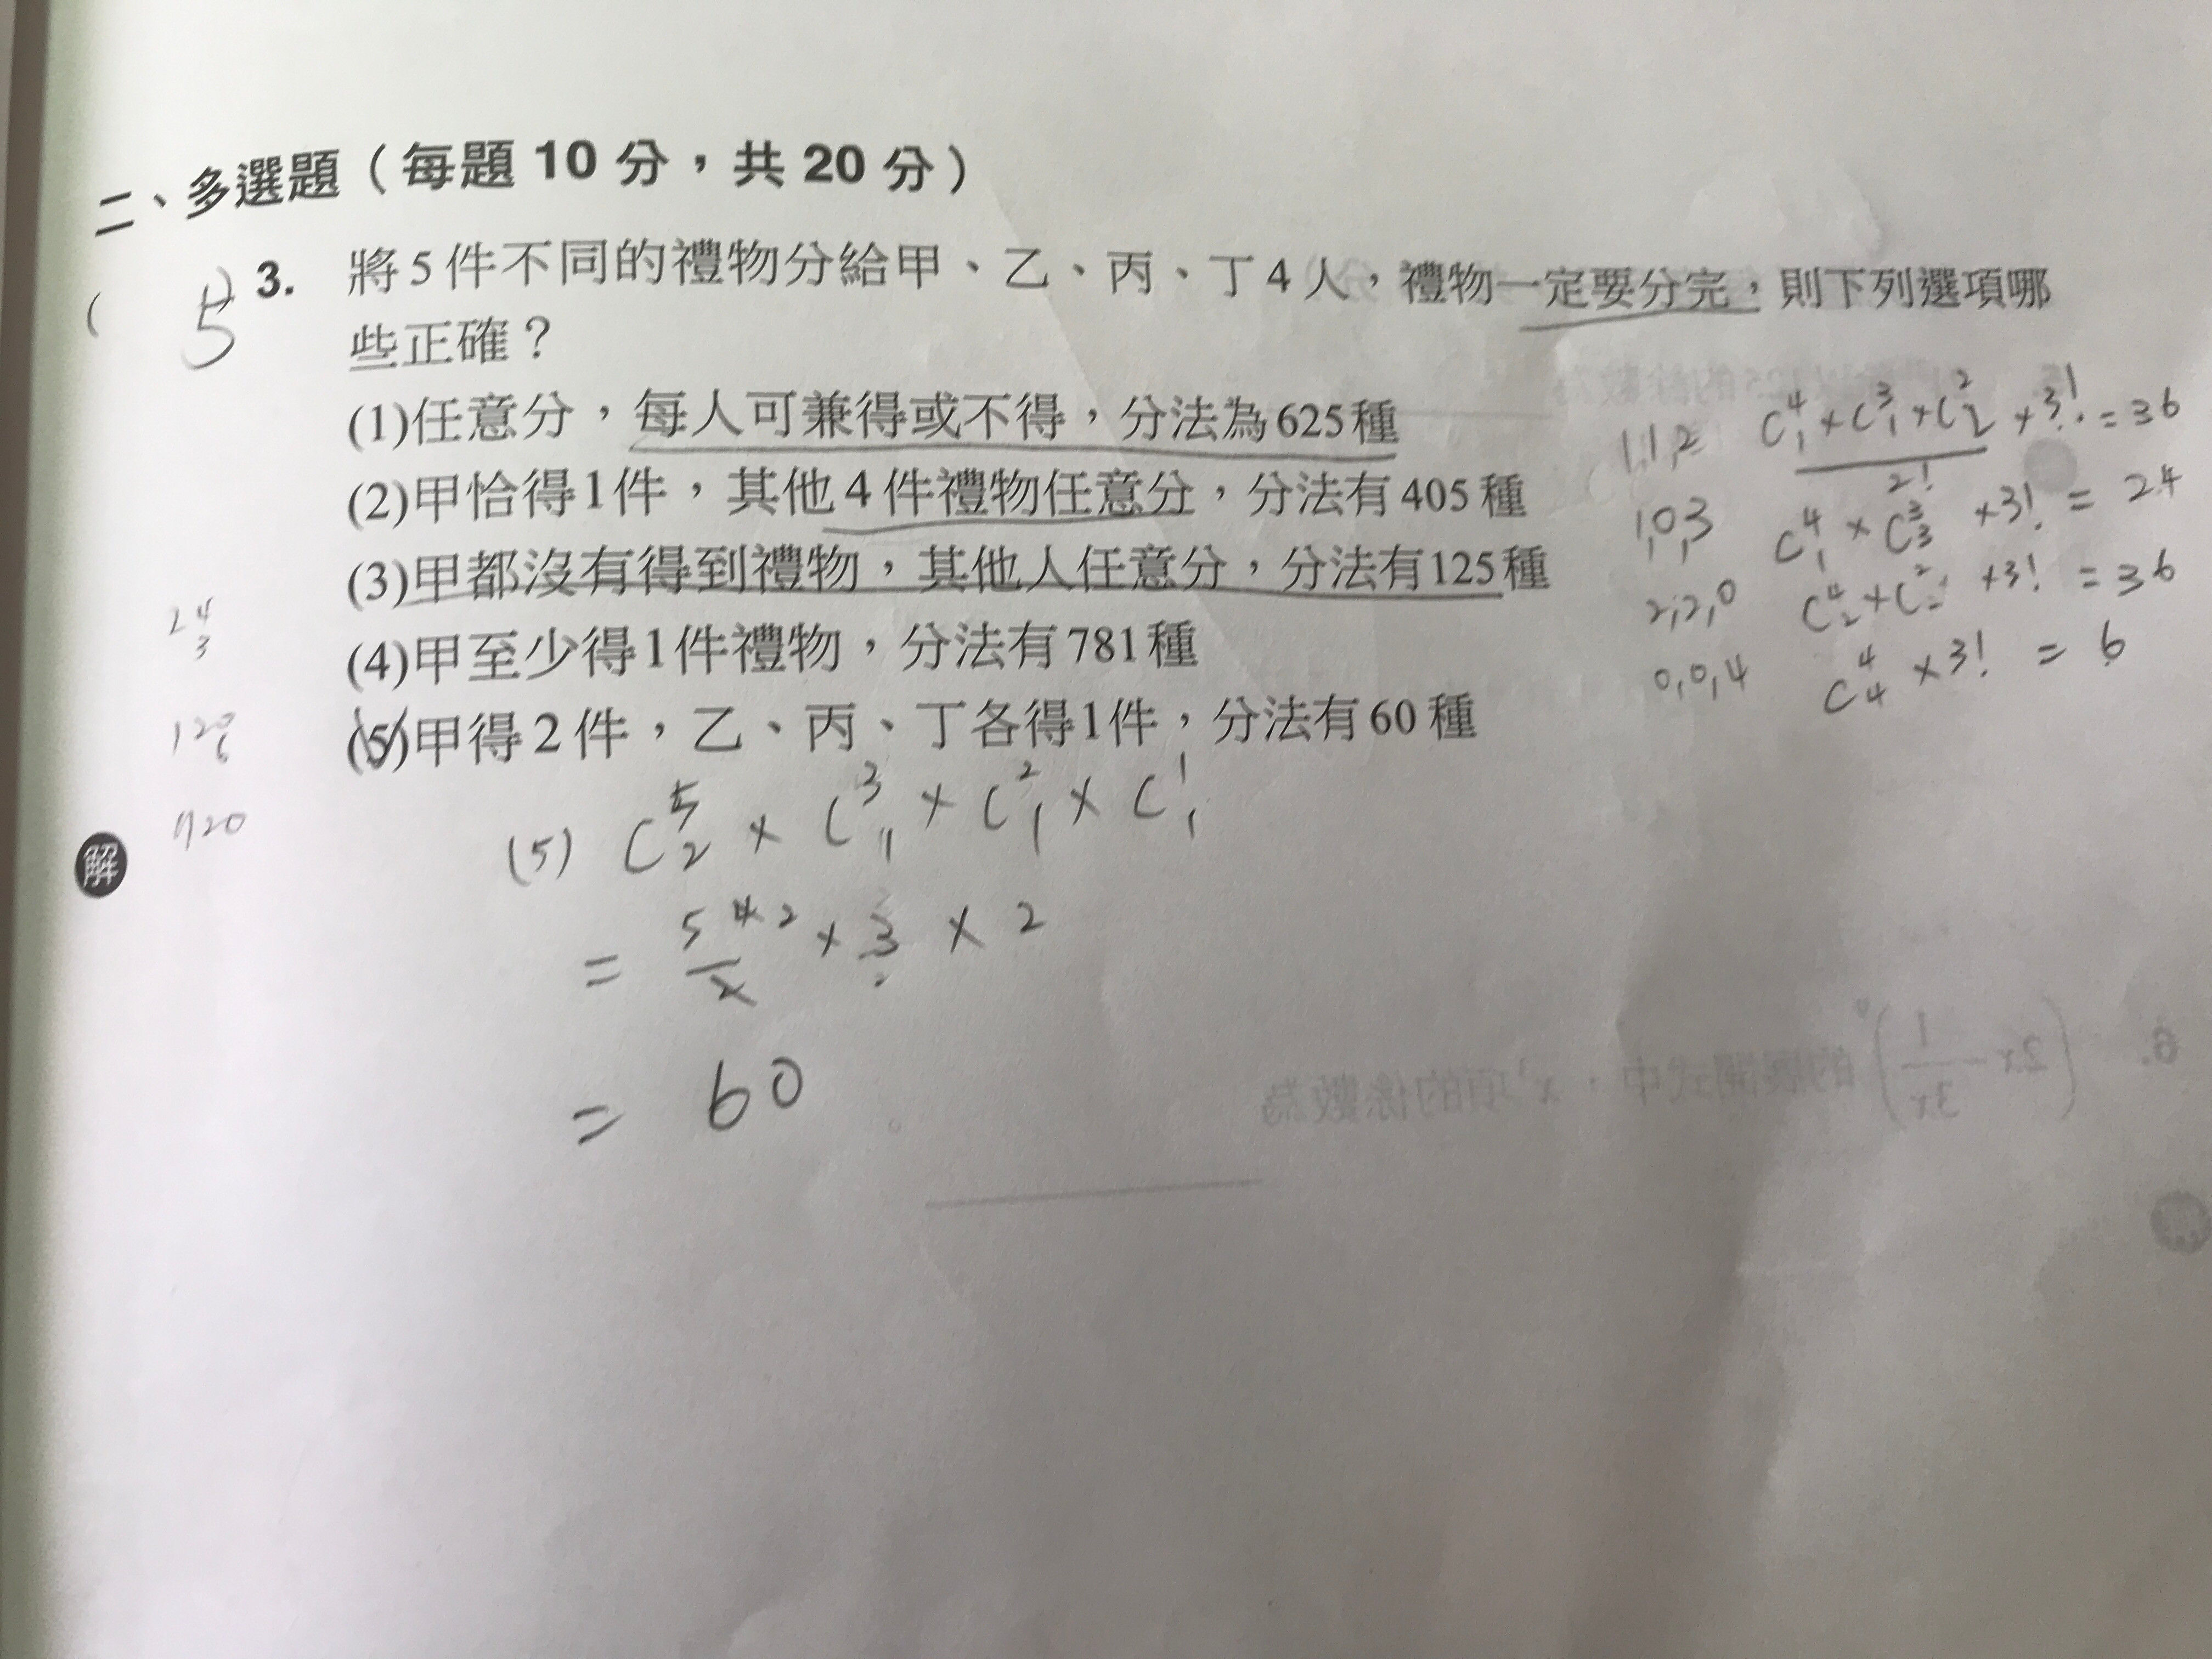 二、多選題（每題 10 分，共 20 分）
( 5 ) 3. 將5件不同的禮物分給甲、乙、丙、丁4人，禮物一定要分完，則下列選項哪
些正確？
(1)任意分，每人可兼得或不得，分法為625種
(2)甲恰得1件，其他4件禮物任意分，分法有405種
(3)甲都沒有得到禮物，其他人任意分，分法有125種
(4)甲至少得1件禮物，分法有781種
(5)甲得2件，乙、丙、丁各得1件，分法有60種
1,1,2 C⁴₁×C³₁×C²₂/2! ×3! = 36
1,0,3 C⁴₁×C³₃ ×3! = 24
2,2,0 C⁴₂×C²₂ ×3! = 36
0,0,4 C⁴₄×3! = 6
24
3
120
6
720
解
(5) C⁵₂ × C³₁ × C²₁ × C¹₁
= 5 4 2/2 × 3 × 2
= 60
6. (2x − 1/3x) 的展開式中，x 項的係數為